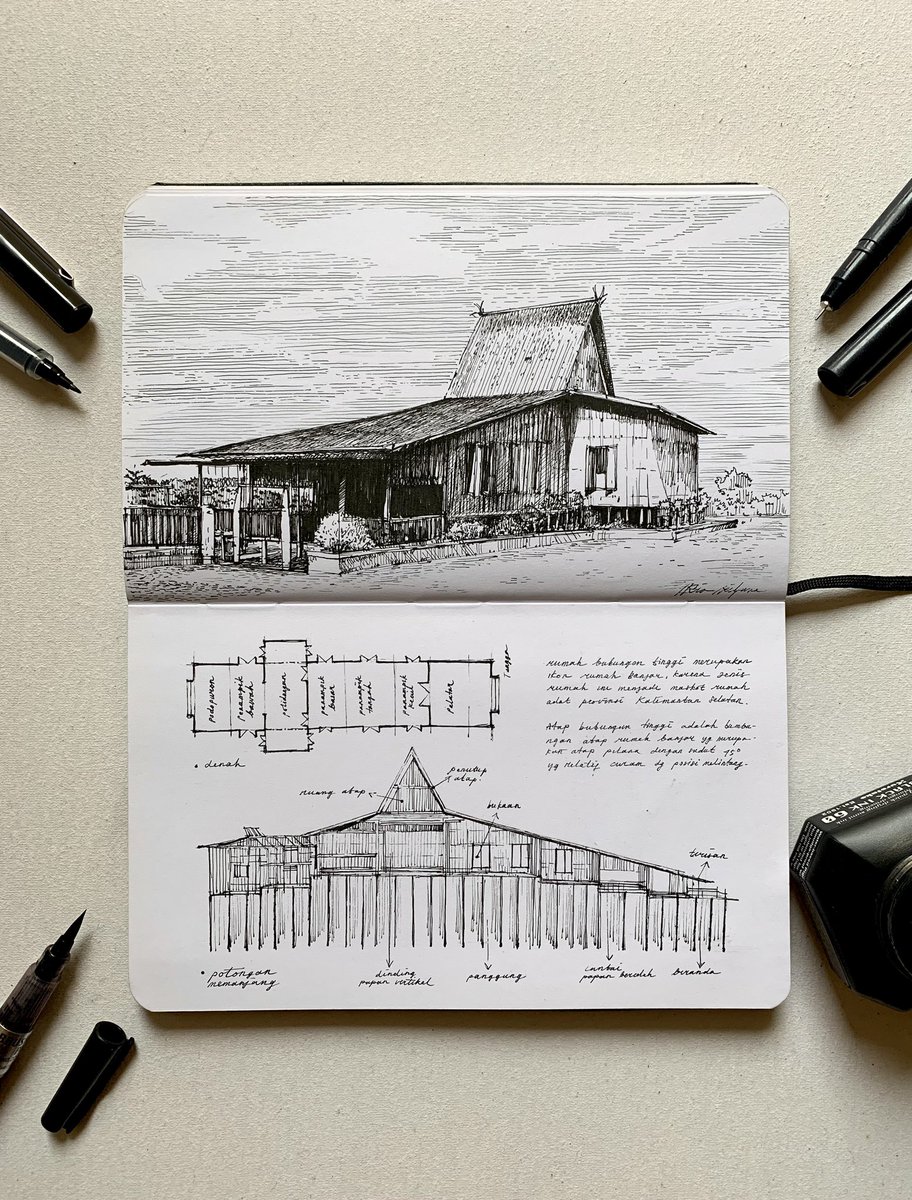 rumah bubungan tinggi merupakan
ikon rumah banjar, karena jenis
rumah ini menjadi maskot rumah
adat provinsi Kalimantan Selatan.
Atap bubungan tinggi adalah bumbu-
ngan atap rumah banjar yg merupa-
kan atap pelana dengan sudut 45°
yg relatif curam dg posisi melintang.
Tangga
pedapuran
panampik
bawah
palidangan
panampik
basar
panampik
tangah
panampik
kacil
Palatar
• denah
ruang atap
penutup
atap
bukaan
teritisan
• potongan
memanjang
dinding
papan vertikal
panggung
lantai
papan
beranda
BLACK INK 60